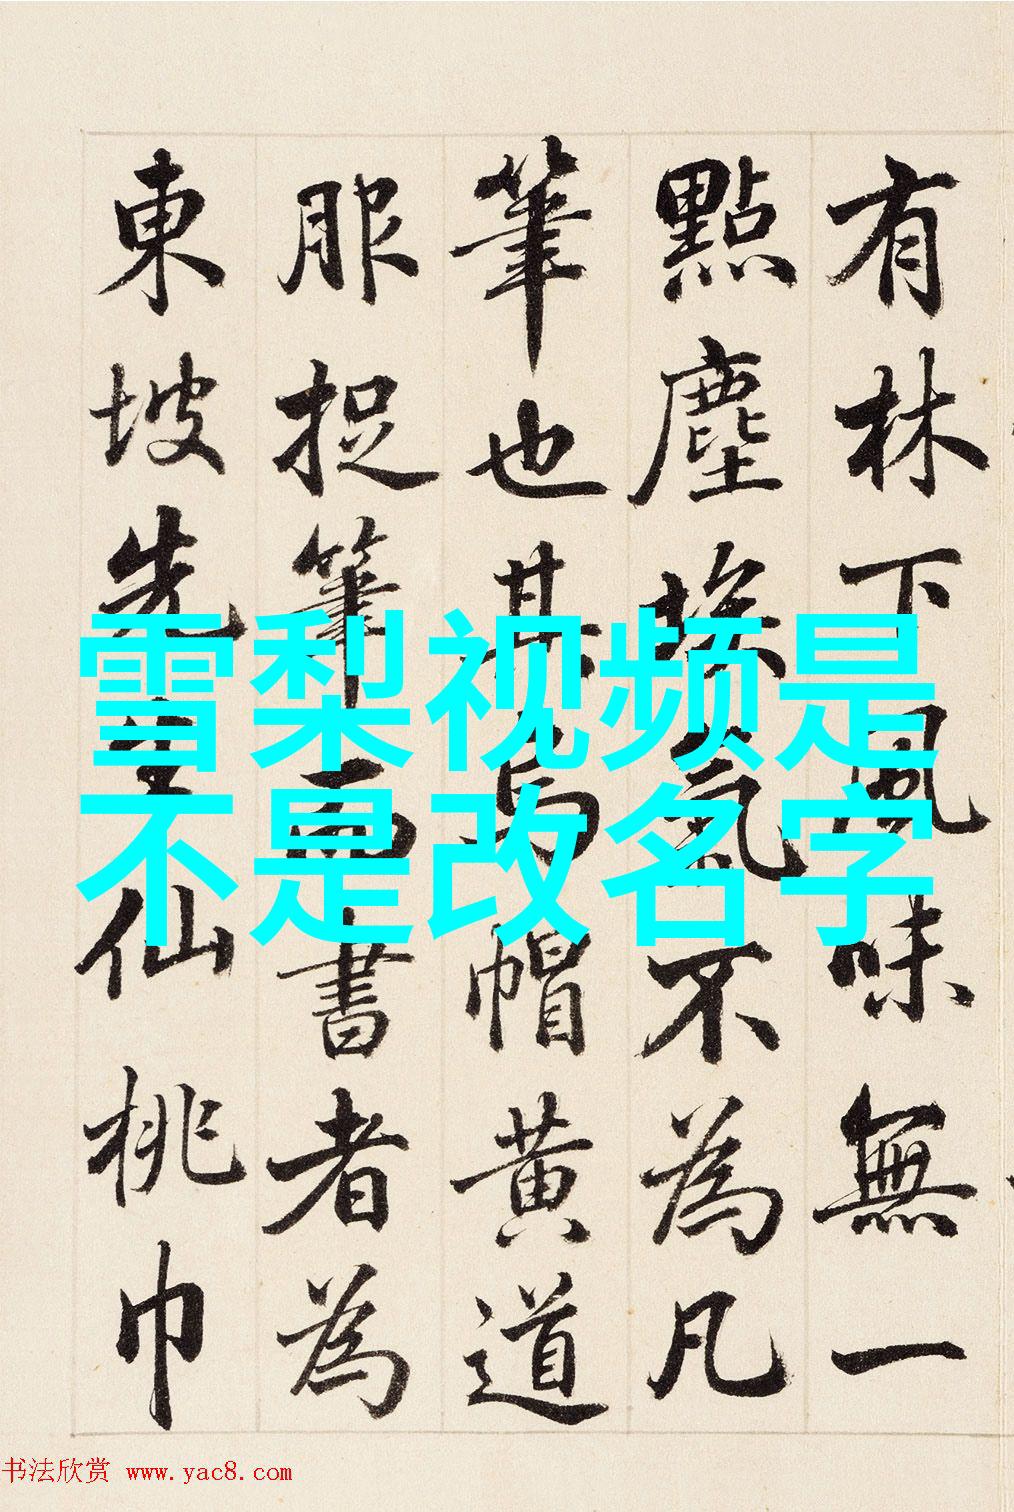 有林下風味無一
點塵埃氣不為凡
筆也其烏帽黃道
服捉筆而書者為
東坡先生仙桃巾
雪梨视频是
不是改名字
书法欣赏 www.yac8.com